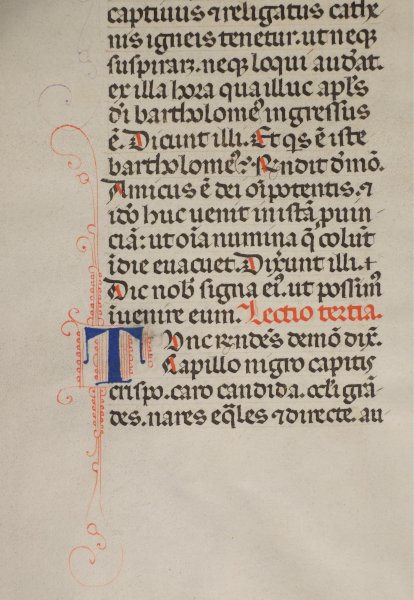 captiuus ⁊ religatus cathe
nis igneis tenetur. ut neqꝫ
suspirare. neqꝫ loqui audeat.
ex illa hora qua illuc apl's
dī bartholome᷒ ingressus
ē. Dicunt illi. Et qͥs ē iste
bartholome᷒. Rn̄dit demō.
Amicus ē dei om̄ipotentis. ⁊
idō huc uenit in istā puin
ciā: ut oīa numina q̄ colunt
īdie euacuet. Dixunt illi.
Dic nob̄ signa ei᷒. ut possim᷒
īuenire eum. Lectio tertia.
Tunc rn̄dēs demō dix̄.
Capillo nigro capitis
crispo. caro candida. ocl'i grā
des. nares eq̄les ⁊ directe. au